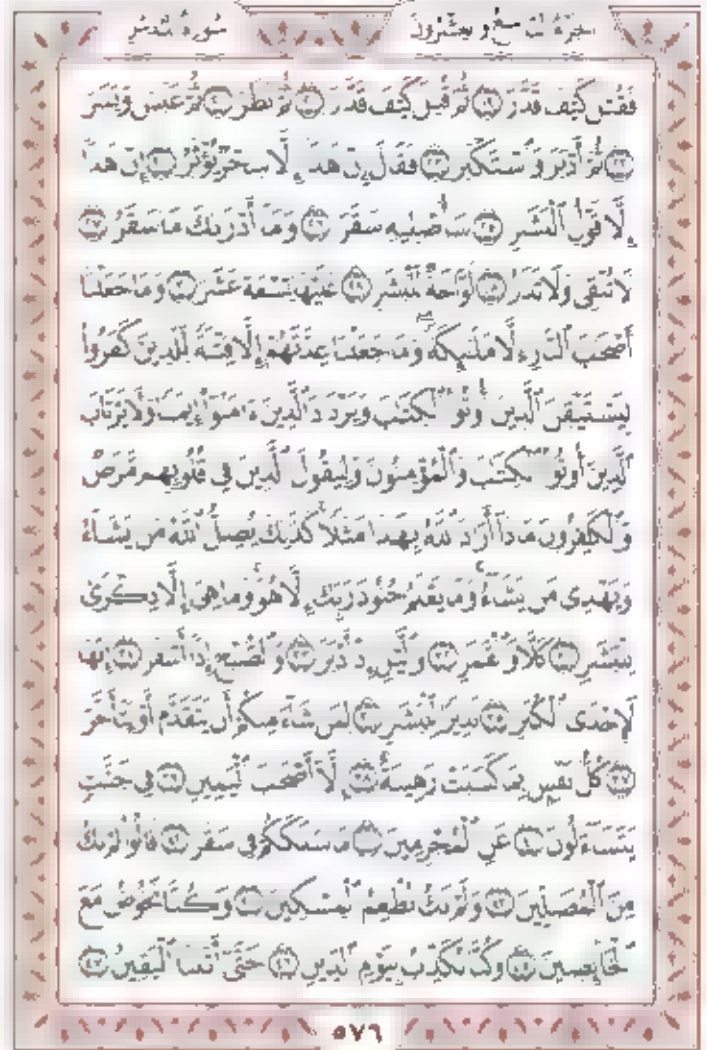 سُورَةُ المُدَّثِّر الجُزْءُ التَّاسِعُ وَالعِشْرُونَ
فَقُتِلَ كَيْفَ قَدَّرَ ١٩ ثُمَّ قُتِلَ كَيْفَ قَدَّرَ ٢٠ ثُمَّ نَظَرَ ٢١ ثُمَّ عَبَسَ وَبَسَرَ
٢٢ ثُمَّ أَدْبَرَ وَٱسْتَكْبَرَ ٢٣ فَقَالَ إِنْ هَٰذَآ إِلَّا سِحْرٌ يُؤْثَرُ ٢٤ إِنْ هَٰذَآ
إِلَّا قَوْلُ ٱلْبَشَرِ ٢٥ سَأُصْلِيهِ سَقَرَ ٢٦ وَمَآ أَدْرَىٰكَ مَا سَقَرُ ٢٧
لَا تُبْقِى وَلَا تَذَرُ ٢٨ لَوَّاحَةٌ لِّلْبَشَرِ ٢٩ عَلَيْهَا تِسْعَةَ عَشَرَ ٣٠ وَمَا جَعَلْنَآ
أَصْحَٰبَ ٱلنَّارِ إِلَّا مَلَٰٓئِكَةً ۙ وَمَا جَعَلْنَا عِدَّتَهُمْ إِلَّا فِتْنَةً لِّلَّذِينَ كَفَرُوا۟
لِيَسْتَيْقِنَ ٱلَّذِينَ أُوتُوا۟ ٱلْكِتَٰبَ وَيَزْدَادَ ٱلَّذِينَ ءَامَنُوٓا۟ إِيمَٰنًا ۙ وَلَا يَرْتَابَ
ٱلَّذِينَ أُوتُوا۟ ٱلْكِتَٰبَ وَٱلْمُؤْمِنُونَ ۙ وَلِيَقُولَ ٱلَّذِينَ فِى قُلُوبِهِم مَّرَضٌ
وَٱلْكَٰفِرُونَ مَاذَآ أَرَادَ ٱللَّهُ بِهَٰذَا مَثَلًا ۚ كَذَٰلِكَ يُضِلُّ ٱللَّهُ مَن يَشَآءُ
وَيَهْدِى مَن يَشَآءُ ۚ وَمَا يَعْلَمُ جُنُودَ رَبِّكَ إِلَّا هُوَ ۚ وَمَا هِىَ إِلَّا ذِكْرَىٰ
لِلْبَشَرِ ٣١ كَلَّا وَٱلْقَمَرِ ٣٢ وَٱلَّيْلِ إِذْ أَدْبَرَ ٣٣ وَٱلصُّبْحِ إِذَآ أَسْفَرَ ٣٤ إِنَّهَا
لَإِحْدَى ٱلْكُبَرِ ٣٥ نَذِيرًا لِّلْبَشَرِ ٣٦ لِمَن شَآءَ مِنكُمْ أَن يَتَقَدَّمَ أَوْ يَتَأَخَّرَ
٣٧ كُلُّ نَفْسٍۭ بِمَا كَسَبَتْ رَهِينَةٌ ٣٨ إِلَّآ أَصْحَٰبَ ٱلْيَمِينِ ٣٩ فِى جَنَّٰتٍ
يَتَسَآءَلُونَ ٤٠ عَنِ ٱلْمُجْرِمِينَ ٤١ مَا سَلَكَكُمْ فِى سَقَرَ ٤٢ قَالُوا۟ لَمْ نَكُ
مِنَ ٱلْمُصَلِّينَ ٤٣ وَلَمْ نَكُ نُطْعِمُ ٱلْمِسْكِينَ ٤٤ وَكُنَّا نَخُوضُ مَعَ
ٱلْخَآئِضِينَ ٤٥ وَكُنَّا نُكَذِّبُ بِيَوْمِ ٱلدِّينِ ٤٦ حَتَّىٰٓ أَتَىٰنَا ٱلْيَقِينُ ٤٧
٥٧٦